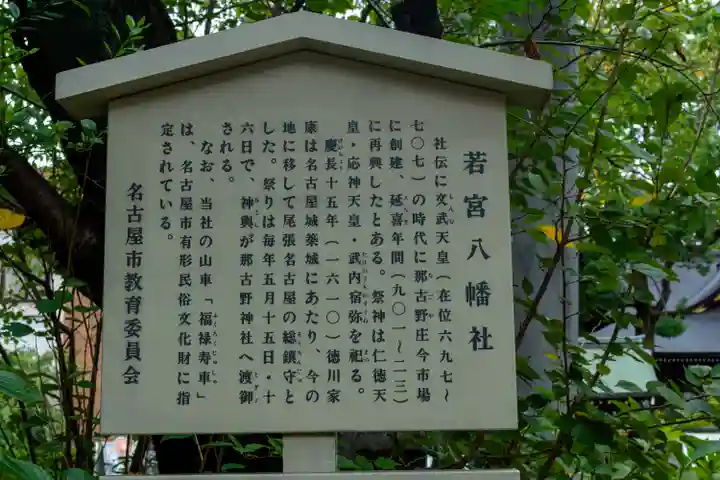 若宮八幡社
社伝に文武天皇(在位六九七〜
七〇七)の時代に那古野庄今市場
に創建、延喜年間(九〇一〜二三)
に再興したとある。祭神は仁徳天
皇・応神天皇・武内宿弥を祀る。
慶長十五年(一六一〇)徳川家
康は名古屋城築城にあたり、今の
地に移して尾張名古屋の総鎮守と
した。祭りは毎年五月十五日・十
六日で、神輿が那古野神社へ渡御
される。
なお、当社の山車「福禄寿車」
は、名古屋市有形民俗文化財に指
定されている。
名古屋市教育委員会